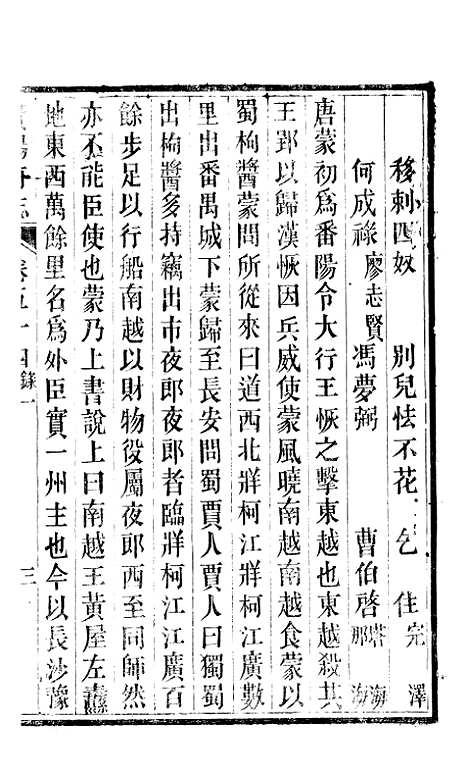 移剌四奴　別兒怯不花　乞住完澤
何成祿　廖志賢　馮夢弼　曹伯啓　塔海那海
唐蒙初爲番陽令大行王恢之擊東越也東越殺其
王郢以歸漢恢因兵威使蒙風曉南越南越食蒙以
蜀枸醬蒙問所從來曰道西北牂柯江牂柯江廣數
里出番禺城下蒙歸至長安問蜀賈人賈人曰獨蜀
出枸醬多持竊出市夜郎夜郎者臨牂柯江江廣百
餘步足以行船南越以財物役屬夜郎西至同師然
亦不能臣使也蒙乃上書說上曰南越王黃屋左纛
地東西萬餘里名爲外臣實一州主也今以長沙豫
卷五十四錄一　三